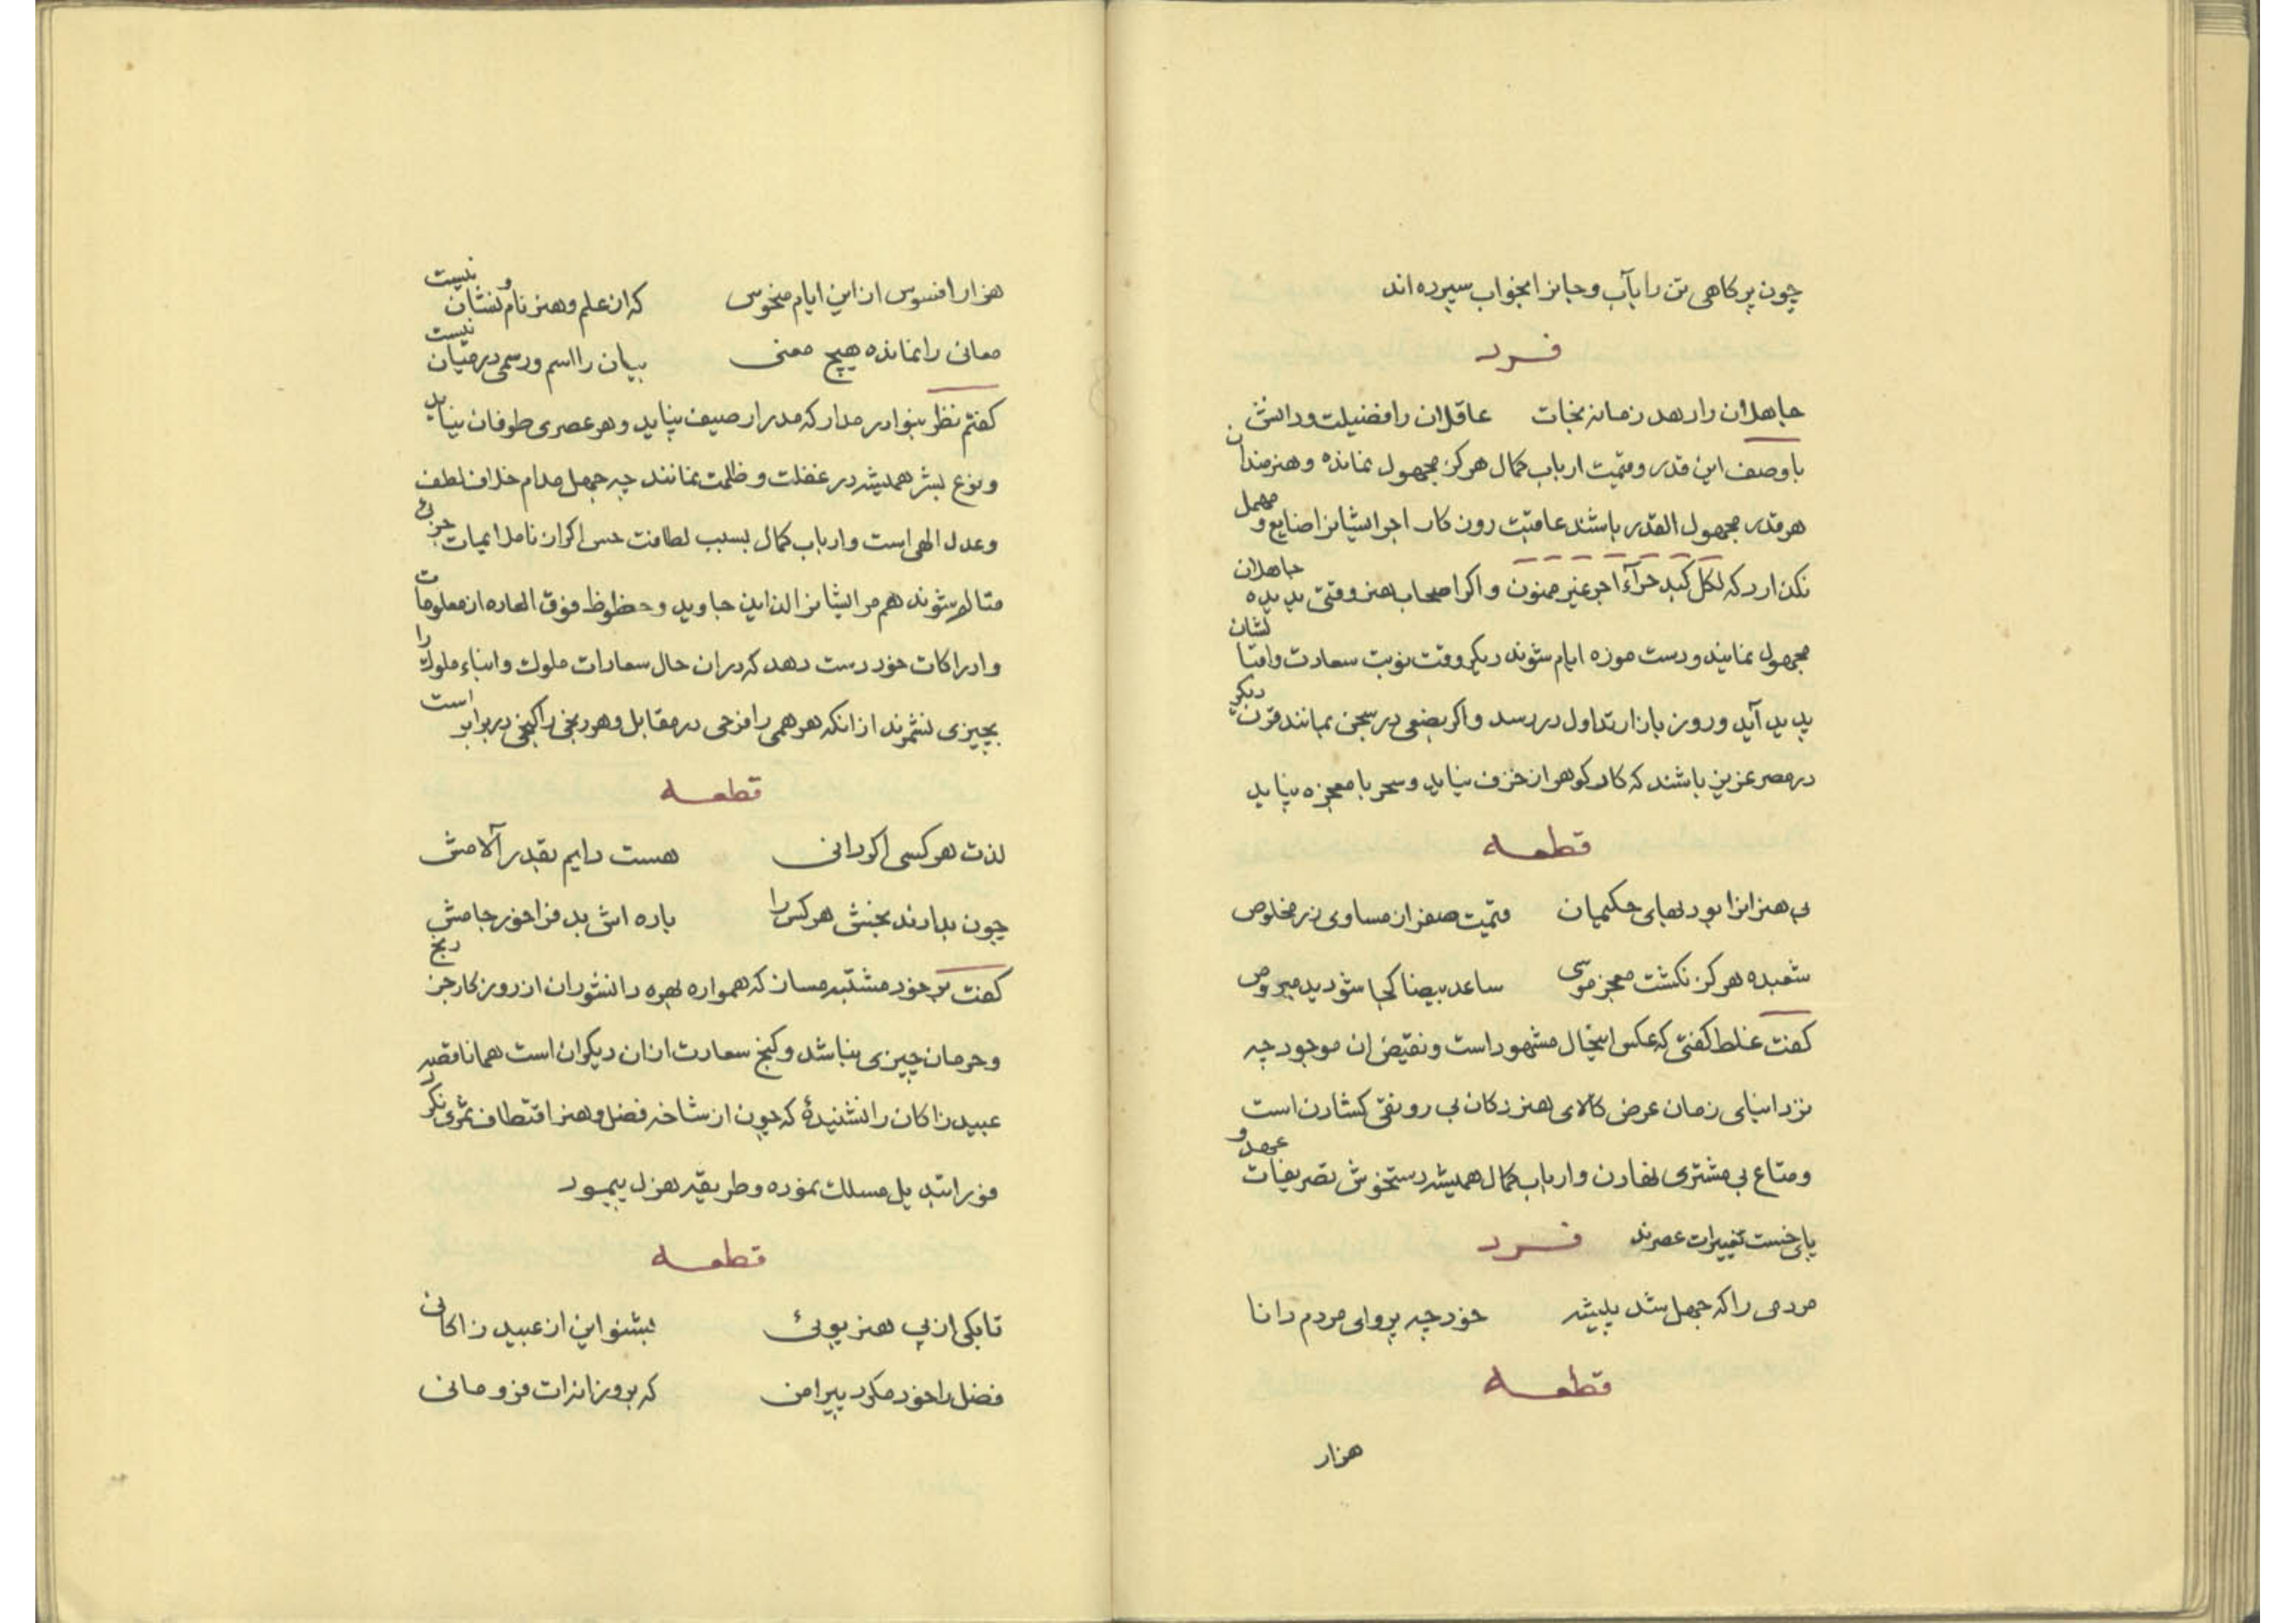 چون پر کاهی تن را بآب و جانرا بخواب سپرده اند
فرد
جاهلان را دهد زمانه نجات عاقلان را فضیلت و دانش
با وصف این قدر و قیمت ارباب کمال هرکز مجهول نمانده و هنرمندان
هر قدر مجهول القدر باشند عاقبت روزکار اجر ایشانرا ضایع و مهمل
نکذارد که لکل کبد حرآء اجر غیر ممنون و اکر اصحاب هنر وقتی بدیده جاهلان
مجهول نمایند و دست موزه ایام شوند دیکر وقت نوبت سعادت وافتا لشان
پدید آید و روز بازار تداول در رسد و اکر بضعی در سجن بمانند قرن دیکر
در مصر عزیز باشند که کار کوهر از خزف نیاید و سحر با معجزه نپاید
قطعه
بی هنرانرا بود بهای حکیمان قیمت صفر از مساوی زر مخلوص
شعبده هرکز نکشت معجز موسی ساعد بیضا کجا شود ید مبروص
کفت غلط کفتی که عکس اینحال مشهور است و نقیض ان موجود چه
نزد ابنای زمان عرض کالای هنر دکان بی رونقی کشادن است
و متاع بی مشتری نهادن و ارباب کمال همیشه دستخوش تصریفات عهد و
پای خست تغییرات عصرند فرد
مردمی را که جهل شد پیشه خود چه پروای مردم دانا
قطعه
هزار
هزار افسوس از این ایام منحوس که از علم و هنر نام و نشان نیست
معانی را نمانده هیچ معنی بیان را اسم و رسمی در میان نیست
کفتم نظر بنوادر مدار که مدرار صیف نپاید و هر عصری طوفان نیاید
و نوع بشر همیشه در غفلت و ظلمت نمانند چه جهل مدام خلاف لطف
و عدل الهی است و ارباب کمال بسبب لطافت حس اکر از ناملایمات جزئی
متالم شوند هم مر ایشانرا لذاین جاوید و حظوظ فوق العاده از معلومات
و ادراکات خود دست دهد که در ان حال سعادات ملوك و ابناء ملوك را
بچیزی نشمرند از انکه هر همی را فرحی در مقابل و هر رنجی را کنجی در برابر است
قطعه
لذت هر کسی اکر دانی هست دایم بقدر آلامش
چون بدارند بخشی هر کس را باده اش بد فراخور جامش
کفت بر خود مشتبه مساز که همواره بهره دانشوران از روزکار جز رنج
و حرمان چیزی نباشد و کنج سعادت از ان دیکران است همانا قصه
عبید زاکان را نشنیدهٔ که چون از شاخه فضل و هنر اقتطاف ثمری نکرد
فورا تبدیل مسلك نموده و طریقه هزل پیمود
قطعه
تا بکی از پی هنر پوئی بشنو این از عبید زاکانی
فضل را خود مکرد پیرامن که بروزانه ات فرو مانی